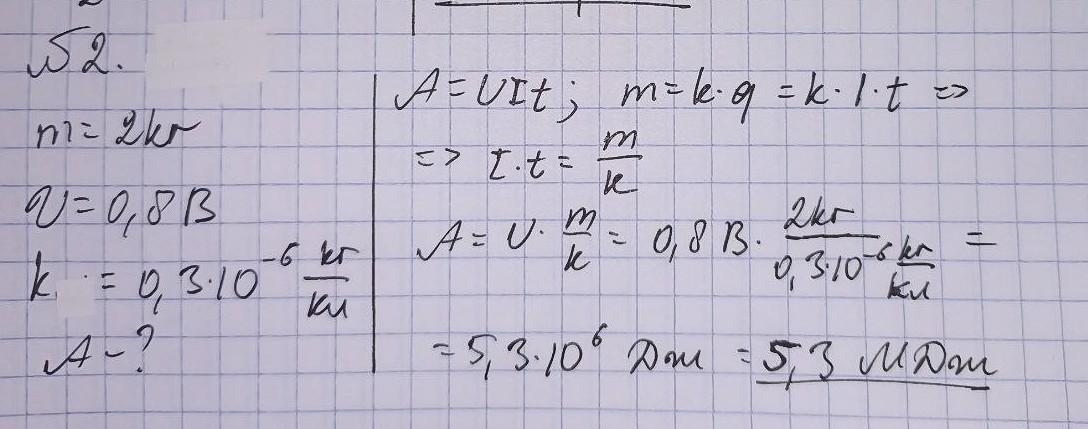 №2.
m = 2кг
U = 0,8 В
k = 0,3·10⁻⁶ кг/Кл
A - ?
A = UIt; m = k·q = k·I·t =>
=> I·t = m/k
A = U· m/k = 0,8 В · 2кг/(0,3·10⁻⁶ кг/Кл) =
= 5,3·10⁶ Дж = 5,3 МДж